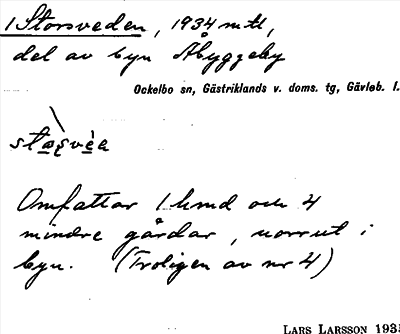 1 Storsveden, 1934 mtl,
del av byn Åbyggeby
Ockelbo sn, Gästriklands v. doms. tg, Gävleb. l.
Omfattar 1 hmd och 4
mindre gårdar, norrut i
byn. (Troligen av nr 4)
LARS LARSSON 1935